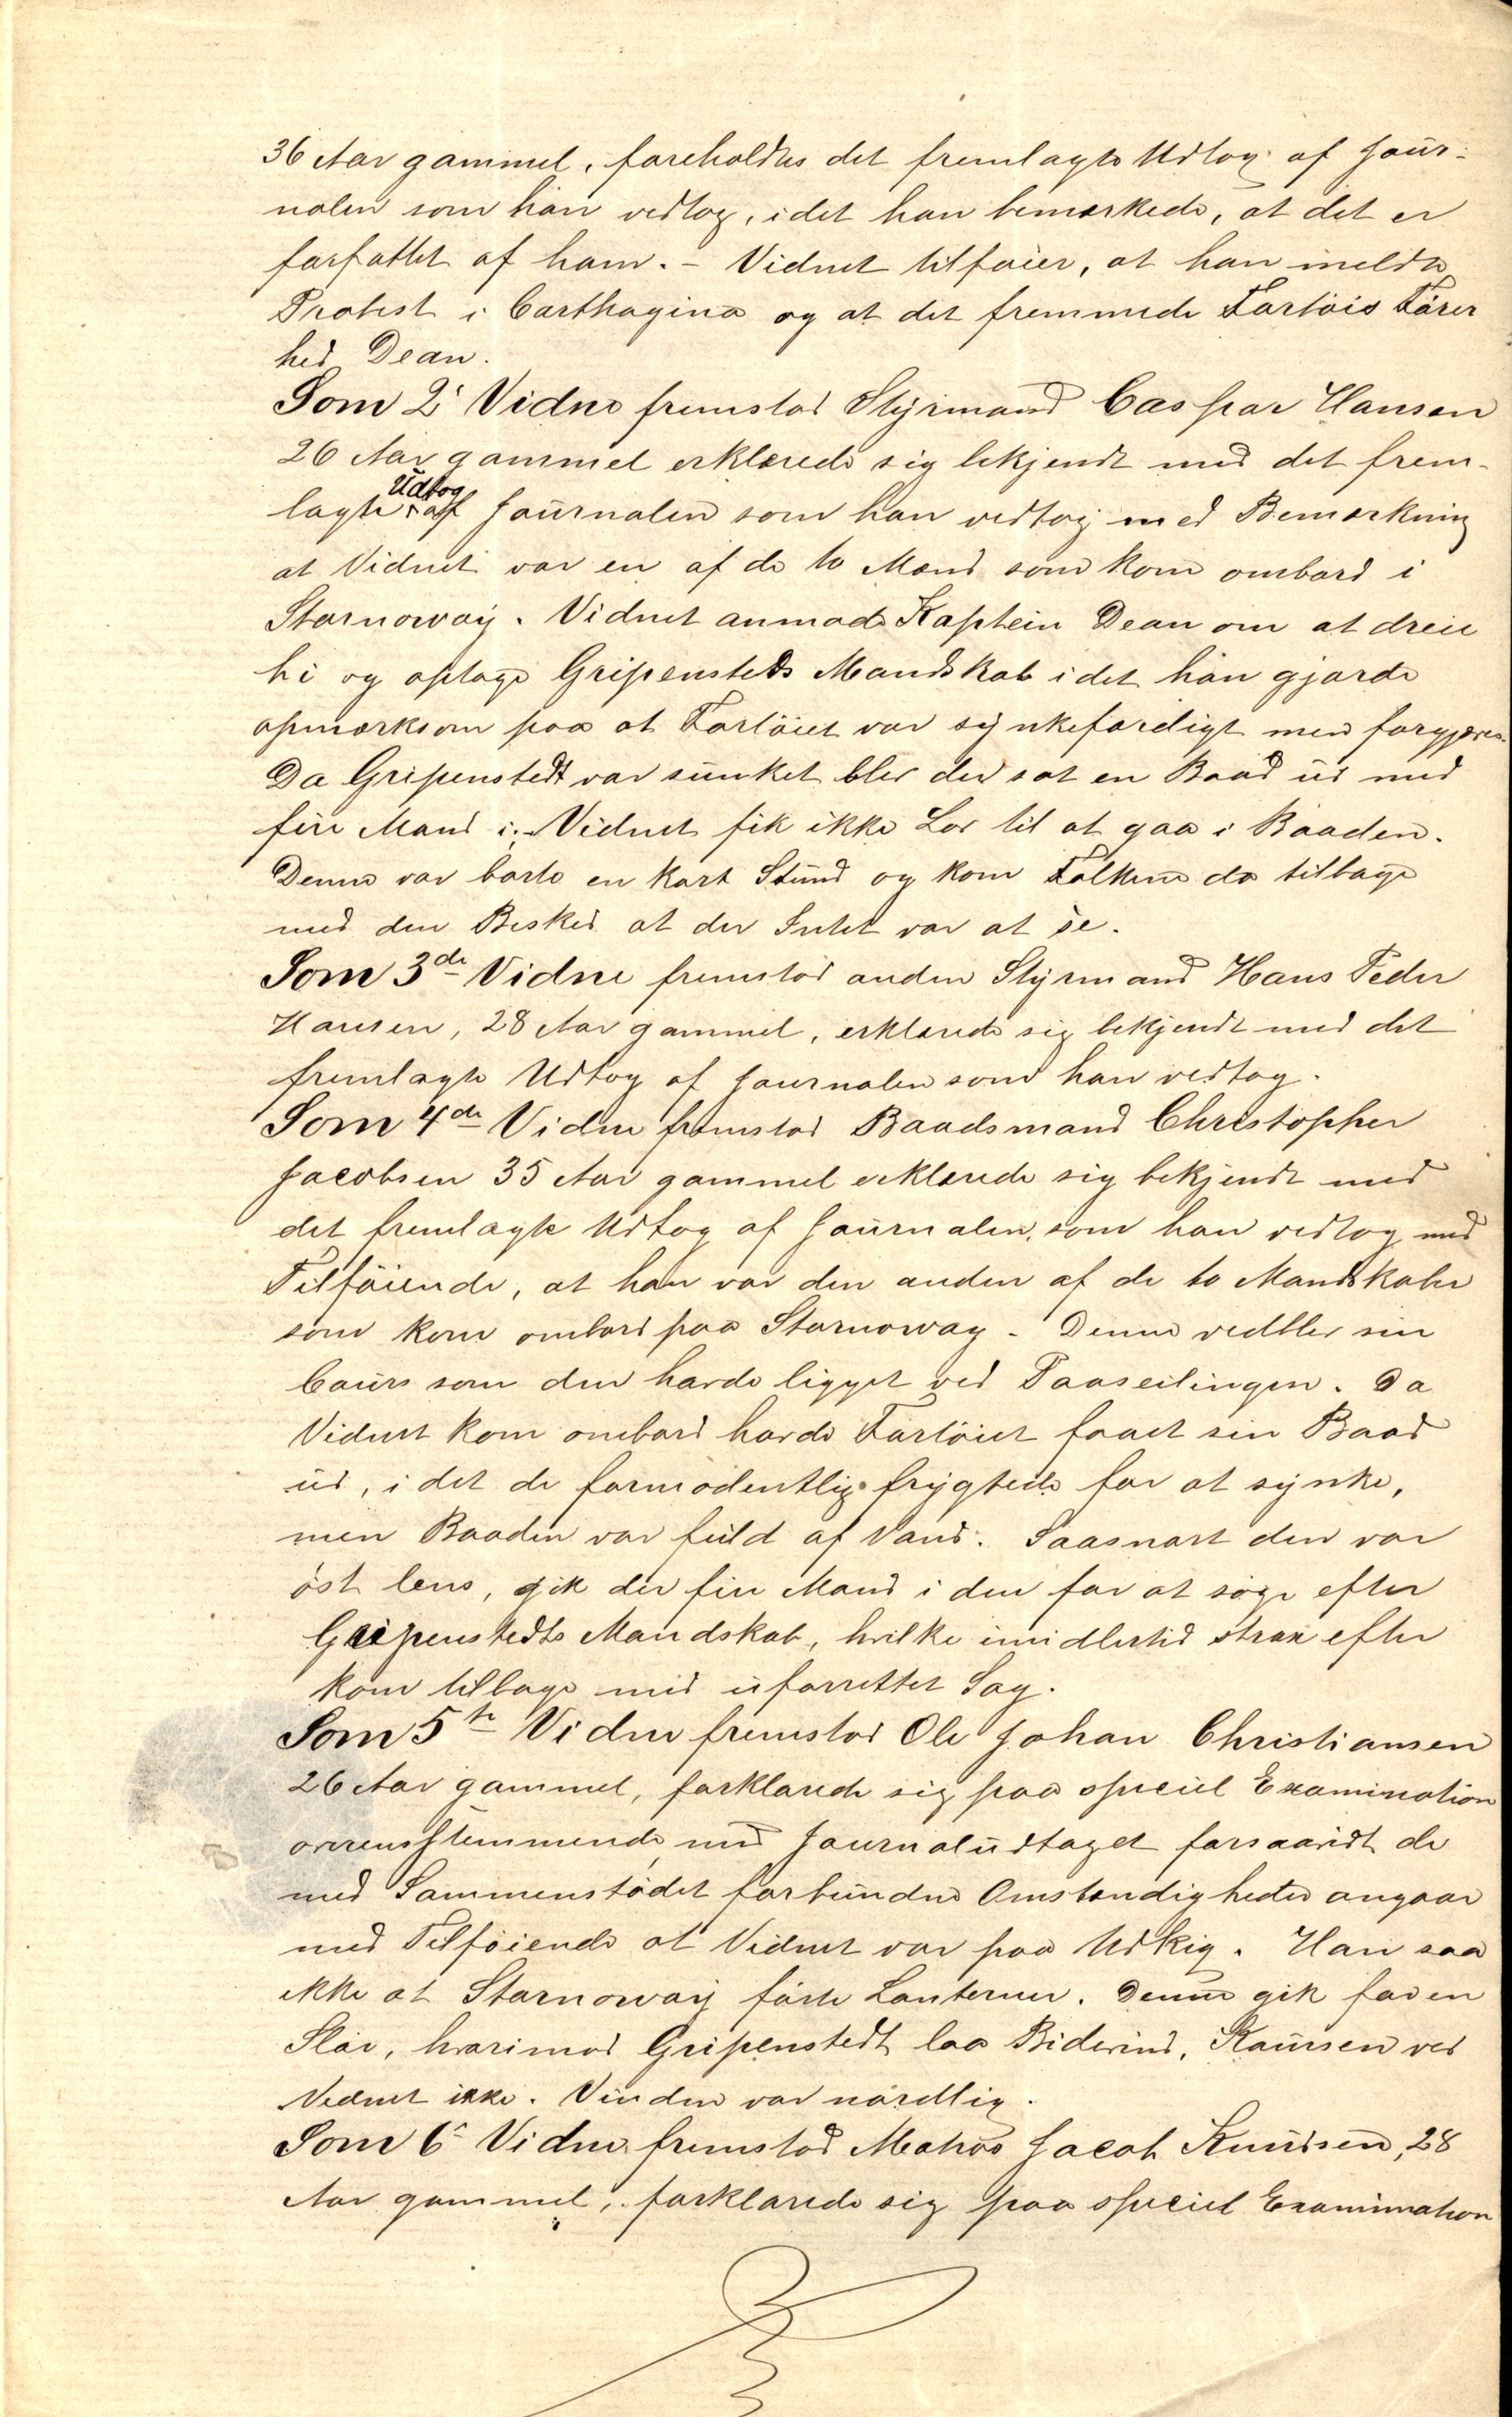 36 Aar gammel, foreholdtes det fremlagte Udtog af Jour-
nalen som han vedtog, idet han bemærkede, at det er
forfattet af ham. - Vidnet tilføier, at han meldte
Protest i Carthagina og at det fremmede Fartöis Förer
hed Dean.
Som 2' Vidne fremstod Styrmand Caspar Hansen
26 Aar gammel erklærede sig bekjendt med det frem-
lagte Udtog af Journalen som han vedtog med Bemærkning
at Vidnet var en af de to Mænd som kom ombord i
Stornoway. Vidnet anmode Kaptein Dean om at dreie
bi og optage Gripensteds Mandskab idet han gjorde
opmærksom paa at Fartöiet var synkefærdigt men forgjæves.
Da Gripenstedt var sunket blev der sat en Baad ud med
fire Mand i. Vidnet fik ikke Lov til at gaa i Baaden.
Denne var borte en kort Stund og kom Folkene da tilbage
med den Besked at der Intet var at se.
Som 3de Vidne fremstod anden Styrmand Hans Peder
Hansen, 28 Aar gammel, erklærede sig bekjendt med det
fremlagte Udtog af Journalen som han vedtog.
Som 4de Vidne fremstod Baadsmand Christopher
Jacobsen 35 Aar gammel erklærede sig bekjendt med
det fremlagte Udtog af Journalen, som han vedtog med
Tilföiende, at han var den anden af de to Mandskaber
som kom ombord paa Stornoway. Denne vedblev sin
Cours som den havde ligget ved Paaseilingen. Da
Vidnet kom ombord havde Fartöiet faaet sin Baad
ud, i det de formodentlig frygtede for at synke,
men Baaden var fuld af Vand. Saasnart den var
öst lens, gik der fire Mand i den for at söge efter
Gripenstedts Mandskab, hvilke imidlertid strax efter
kom tilbage med uforrettet Sag.
Som 5te Vidne fremstod Ole Johan Christiansen
26 Aar gammel, forklarede sig paa speciel Examination
overensstemmende med Journaludtoget forsaavidt de
med Sammenstödet forbundne Omstændigheder angaar
med Tilföiende at Vidnet var paa Udkig. Han saa
ikke at Stornoway förte Lanterner. Denne gik for en
Slör, hvorimod Gripenstedt laa Bidevind, Koursen ved
Vidnet ikke. Vinden var nordlig.
Som 6' Vidne fremstod Matros Jacob Knudsen, 28
Aar gammel, forklarede sig paa speciel Examination